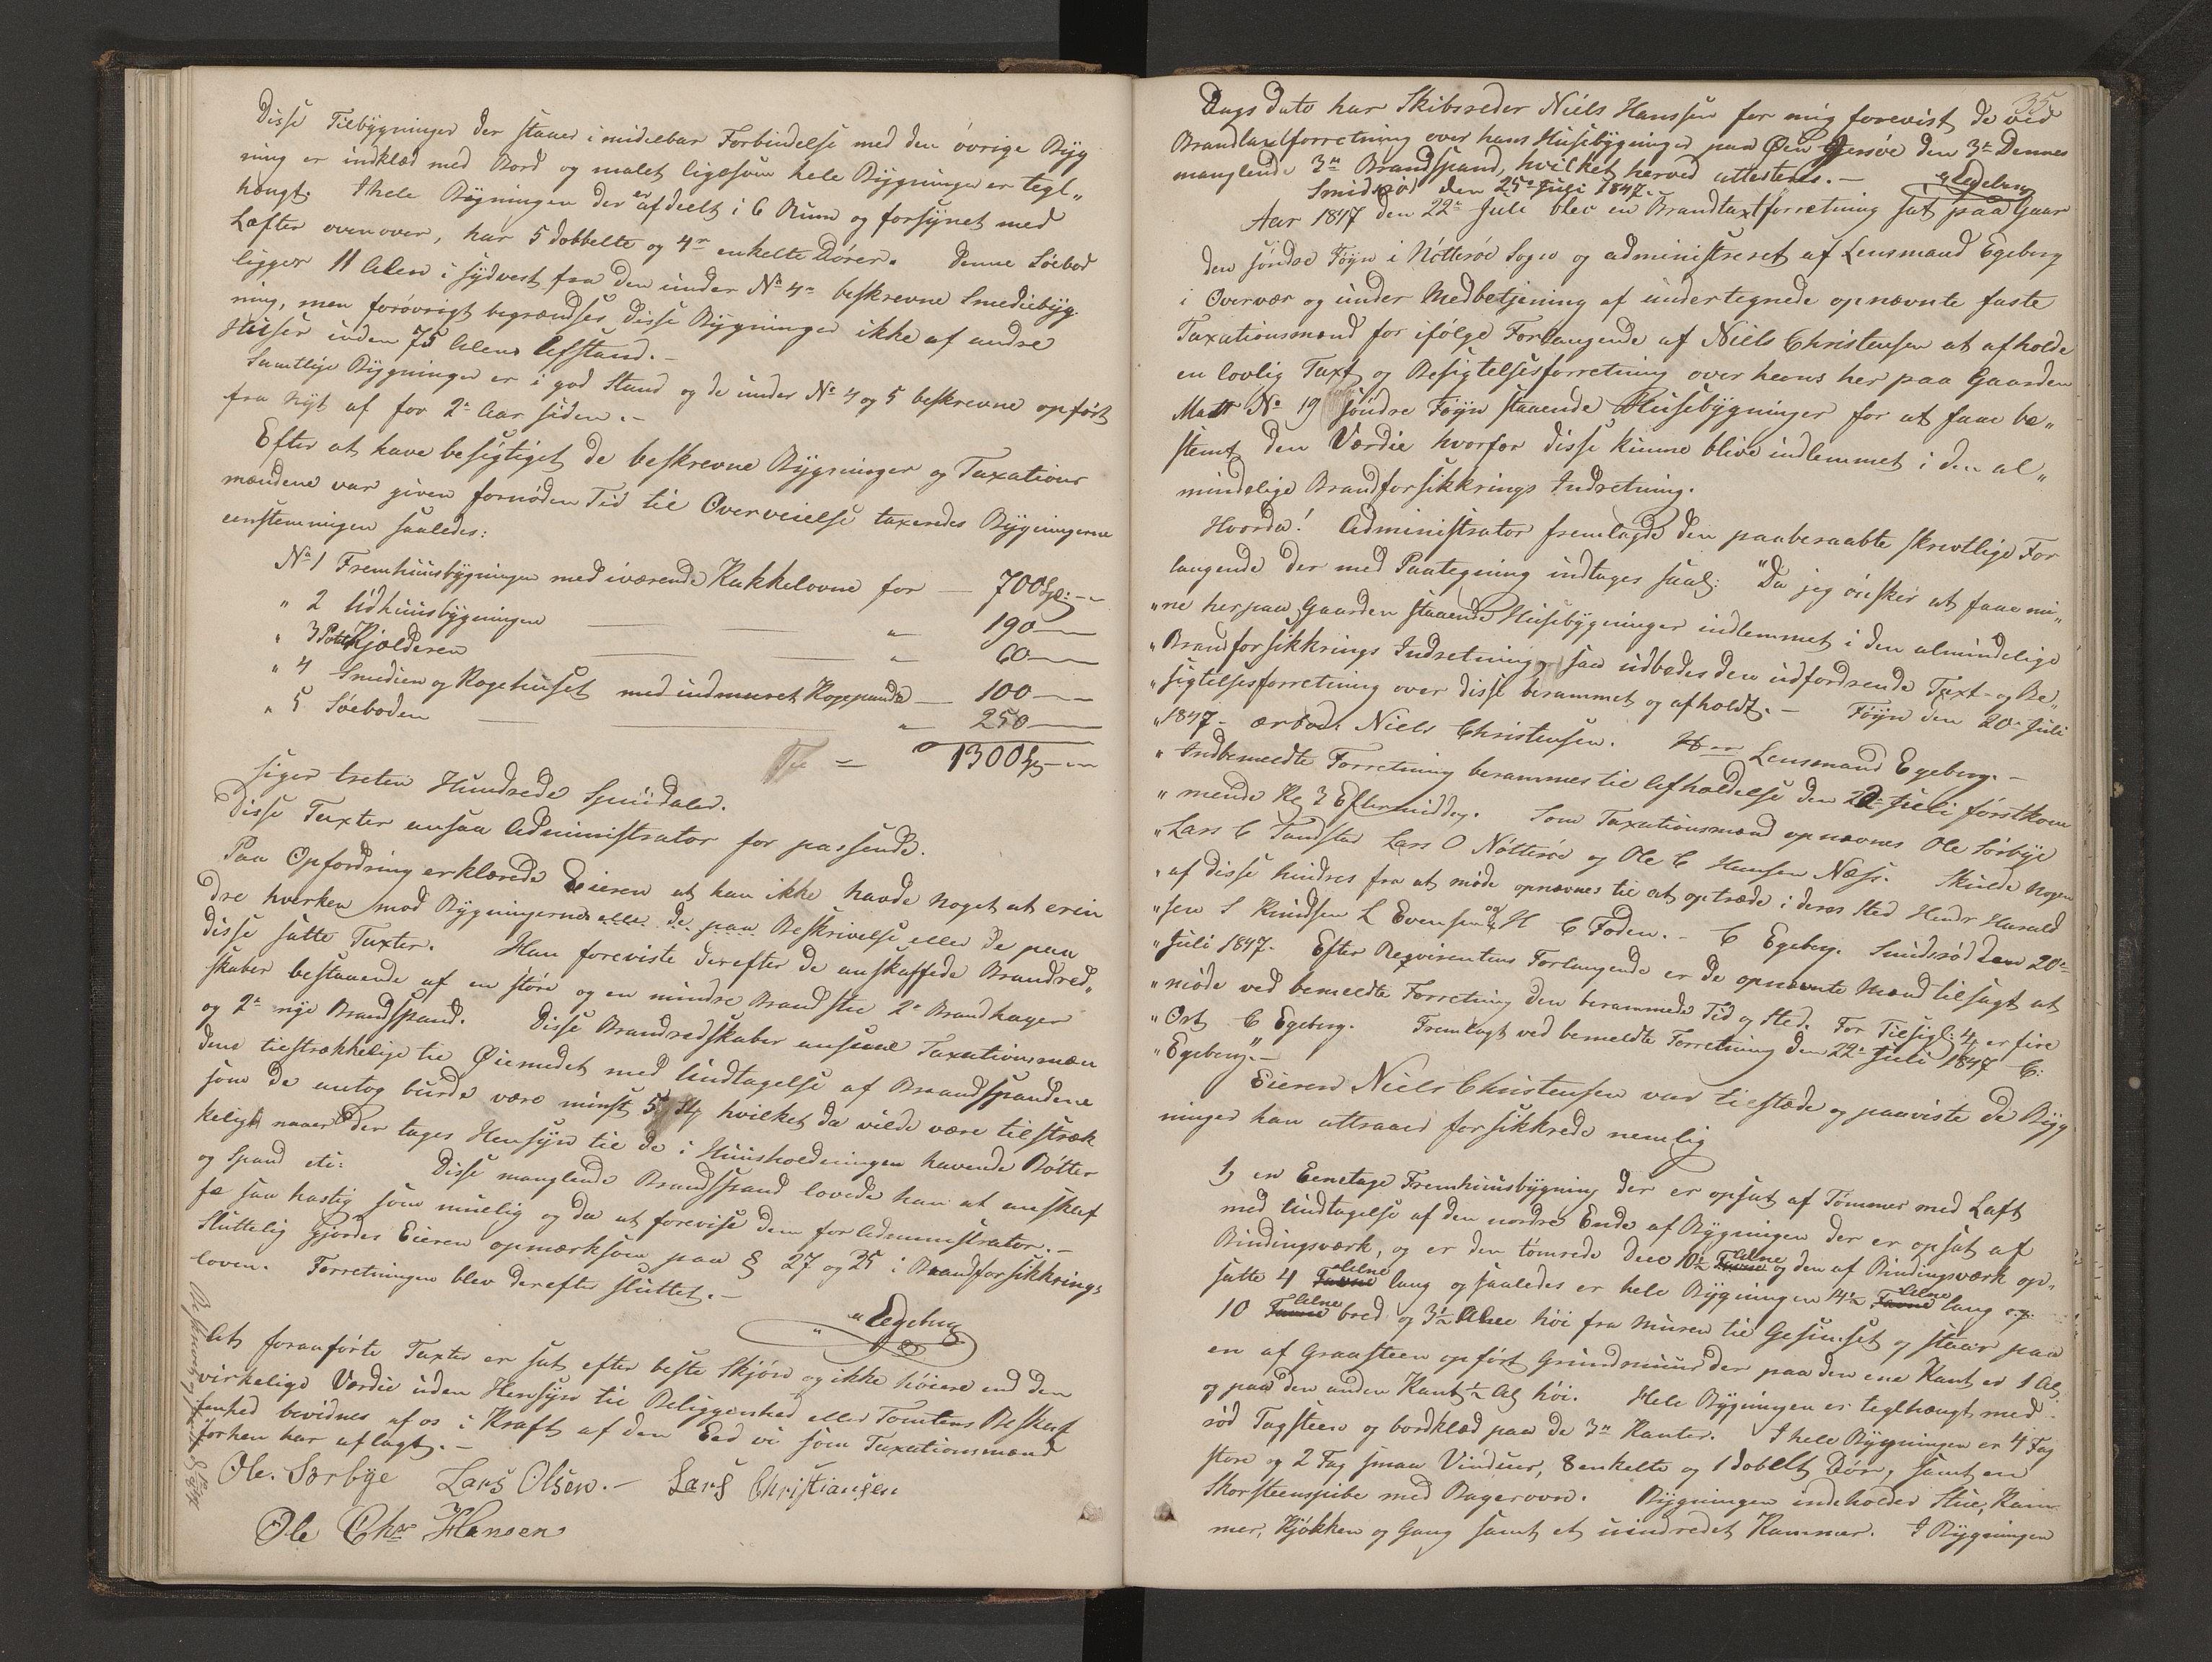 Disse Tilbygninger der staaer i midelbar Forbindelse med den övrige Byg
ning er indklæd med Bord og malet ligesom hele Bygningen er tegl„
hængt. I hele Bygningen der er afdeelt i 6 Rum og forsÿnet med
Lofter ovenover, har 5 dobbelte og 4re enkelte Dörer. Denne Söebod
ligger 11 Alen i sÿdvest fra den under No 4re beskrevne Smediebyg
ning, men forövrigt begrændses disse Bÿgninger ikke af andre
Huser inden 75 Alens Afstand.–
Samtlige Bÿgninger er i god Stand og de under No 4 og 5 beskrevne opfört
fra nÿt af for 2de Aar siden.–
Efter at have besigtiget de beskrevne Bÿgninger og Taxations
mændene var given fornöden Tid til Overveielse taxeredes Bÿgningerne
eenstemmigen saaledes:
No 1 Fremhuusbÿgningen med iværende Kakkelovne for — 700 Spd:
" 2 Udhuusbÿgningen — " 190 —
" 3 Potetkjælderen — " 60 —
" 4 Smedien og Kogehuset med indmuret Kogepande — 100 —
" 5 Söeboden — " 250 —
1300 Spd
siger tretten Hundrede Speciedaler.
Disse Taxter ansaa Administrator for passende.
Paa Opfordring erklærede Eieren at han ikke havde noget at erin
dre hverken mod Bygningernes eller de paa Beskrivelse eller de paa
disse satte Taxter. Han foreviste derefter de anskaffede Brandred„
skaber bestaaende af en störe og en mindre Brandstie 2de Brandhager
og 2de nÿe Brandspand. Disse Brandredskaber ansaae Taxationsmæn
dene tilstrækkelige til Öiemedet med Undtagelse af Brandspandene
som de antog burde være minst 5 St hvilket da vilde være tilstræk
keligt naar der tages Hensÿn til de i Huusholdningen havende Bötter
og Spand etc: Disse manglende Brandspand lovede han at anskaf
fe saa hastig som muelig og da at forevise dem for Administrator.–
Sluttelig gjordes Eieren opmærksom paa § 27 og 25 i Brandforsikkrings
loven. Forretningen blev derefter sluttet.–
Egeberg
At foranförte Taxter er sat efter beste Skjön og ikke höiere end den
virkelige Værdie uden Hensÿn til Beliggenhed eller Tomtens Beskaf
fenhed bevidnes af os i Kraft af den Eed vi som Taxationsmænd
forhen har aflagt.–
Ole. Sørbÿe Lars Olsen.– Lars Christiansen
Ole Chr Hansen
35
Dags dato har Skibsreder Niels Hanssen for mig forevist de ved
Brandtaxtforretning over hans Husebÿgninger paa Öen Gjersöe den 3de Dennes
manglende 3de Brandspand, hvilket herved attesteres.–
Smidsröd den 25de Juli 1847. Egeberg
Aar 1847 den 22de Juli blev en Brandtaxtforretning sat paa Gaar
den söndre Föÿn i Nötteröe Sogn og administreret af Lensmand Egeberg
i Overvær og under Medbetjening af undertegnede opnævnte faste
Taxationsmænd for ifölge Forlangende af Niels Christensen at afholde
en lovlig Taxt og Besigtelsesforretning over hans her paa Gaarden
Matr No 19 söndre Föÿn staaende Husebÿgninger for at faae be„
stemt den Værdie hvorfor disse kunne blive indlemmet i den al„
mindelige Brandforsikkrings Indretning.
Hvorda! Administrator fremlagde den paaberaabte skrivtlige For
langende der med Paategning indtages saal: "Da jeg önsker at faae mi„
„ne her paa Gaarden staaende Husebÿgninger indlemmet i den almindelige
„Brandforsikkrings Indretning, saa udbedes den udfordrende Taxt- og Be„
„sigtelsesforretning over disse berammet og afholdt.– Föÿn den 20de Juli
„1847– ærbod: Niels Christensen. Hrr Lensmand Egeberg.–
„Indbemeldte Forretning berammes til Afholdelse den 22de Juli förstkom
„mende Kl 3 Eftermiddag. Som Taxationsmænd opnævnes Ole Sörbÿe
„Lars C Tandstad Lars O Nötteröe og Ole C Hansen Næss. Skulde nogen
„af disse hindres fra at möde opnævnes til at optræde i deres Sted Hendr Harald
„sen S Knudsen L Evensen og H C Foden.– C Egeberg. Smidsröd den 20de
„Juli 1847. Efter Reqvirentens Forlangende er de opnævnte Mænd tilsagt at
„möde ved bemeldte Forretning den berammede Tid og Sted. For Tilsigl: 4 er fire
„Ort C Egeberg. Fremlagt ved bemeldte Forretning den 22de Juli 1847 C:
„Egeberg".–
Eieren Niels Christensen var tilstede og paaviste de Bÿg
ninger han attraaer forsikkrede nemlig
1) en Eenetage Fremhuusbÿgning der er opsat af Tömmer med Laft
med Undtagelse af den nordre Ende af Bÿgningen der er opsat af
Bindingsværk, og er den tömrede Deel 10½ Favne Alne og den af Bindingsværk op„
satte 4 Favne Alne lang og saaledes er hele Bÿgningen 14½ Favne Alne lang og
10 Favne Alne bred og 3½ Alen höi fra Muren til Gesimset og staar paa
en af Graasteen opfört Grundmuur der paa den ene Kant er 1 Al
og paa den anden Kant ½ Al höi. Hele Bÿgningen er teglhængt med
röd Tagsteen og bordklæd paa de 3de Kanter. I hele Bÿgningen er 4 Fag
store og 2 Fag smaa Vinduer, 8 enkelte og 1 dobbelt Dörr, samt en
Skorsteenspibe med Bagerovn. Bÿgningen indeholder Stue, Kam
mer, Kjökken og Gang samt et uindredet Kammer. I Bÿgningen